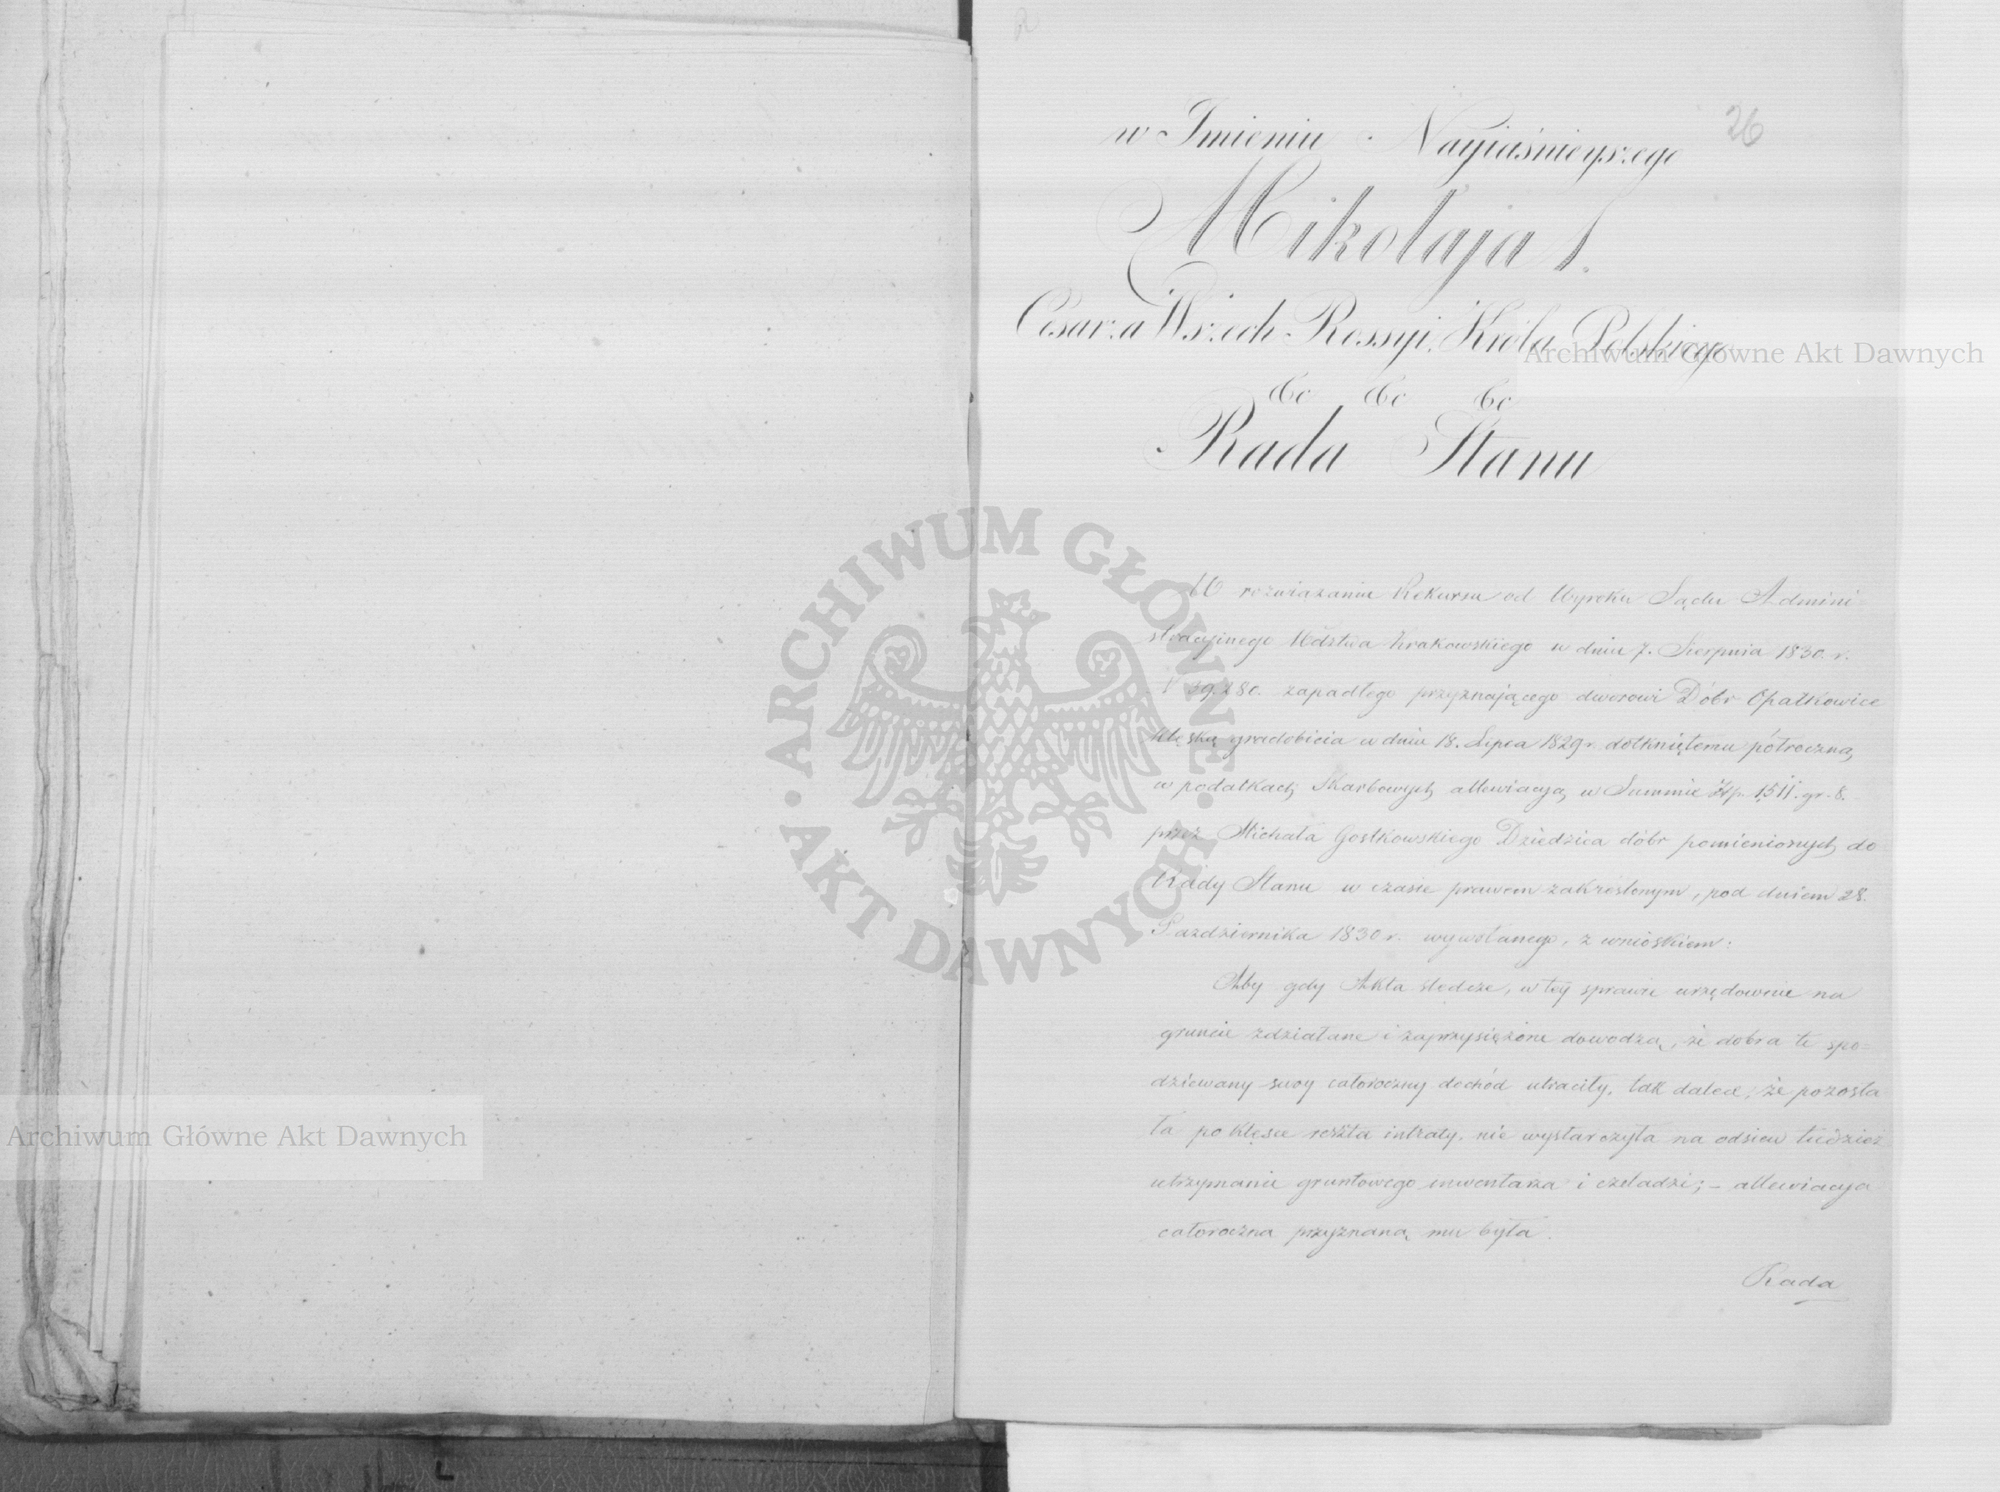 26
w Imieniu Nayiaśnieyszego
Mikołaja I.
Cesarza Wszech Rossyi, Króla Polskiego
&c &c &c
Rada Stanu
W rozwiązaniu Rekursu od Wyroku Sądu Admini
stracyjnego Wdztwa Krakowskiego w dniu 7. Sierpnia 1830. r.
N 39,280. zapadłego przyznającego dworowi Dóbr Opatkowice
klęską gradobicia w dniu 18. Lipca 1829 r. dotkniętemu półroczną
w podatkach Skarbowych allewiacyą w Summie Złp. 1,511. gr. 8.
przez Michała Gostkowskiego Dziedzica dóbr pomienionych do
Rady Stanu w czasie prawem zakreślonym, pod dniem 28.
Pazdziernika 1830 r. wywołanego, z wnioskiem:
Aby gdy Akta śledcze, w tey sprawie urzędownie na
gruncie zdziałane i zaprzysiężone dowodzą, że dobra te spo=
dziewany swoy całoroczny dochód utraciły, tak dalece, że pozosta
ła po klęsce reszta intraty, nie wystarczyła na odsiew tudzież
utrzymanie gruntowego inwentarza i czeladzi; – allewiacya
całoroczna przyznaną mu była.
Rada
Archiwum Główne Akt Dawnych
Archiwum Główne Akt Dawnych
ARCHIWUM GŁÓWNE
AKT DAWNYCH